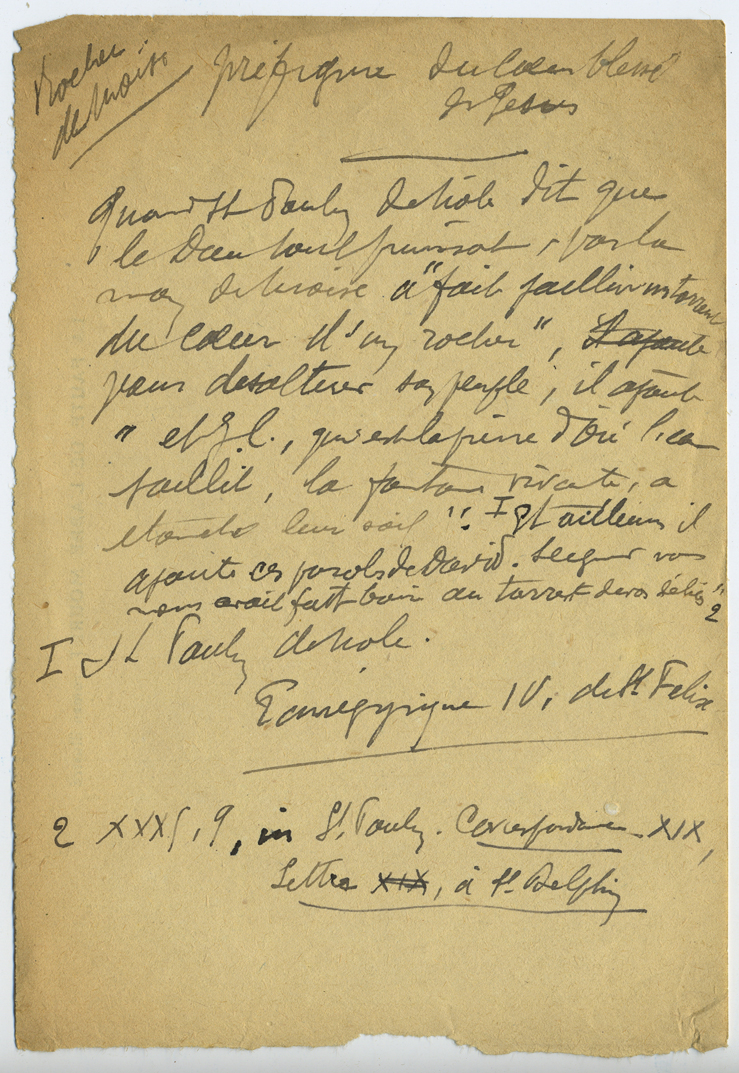 Rocher
de Moïse
préfigure du Cœur blessé
de Jésus
Quand St Paulin de Nole dit que
le Dieu tout puissant, par la
main de Moïse a "fait jaillir un torrent
du cœur d'un rocher", Il ajoute
pour désaltérer son peuple, il ajoute
" et J.C., qui est la pierre d'où l'eau
jaillit, la fontaine vivante, a
étanché leur soif". I Et ailleurs il
ajoute ces parols de David. Seigneur vous
nous avait fait boire au torrent de vos délices" 2
I St Paulin de Nole.
Panégyrique IV, de St Felix
2 XXXV, 9, in St. Paulin. Correspondance XIX,
Lettre XIX, à St. Delphin